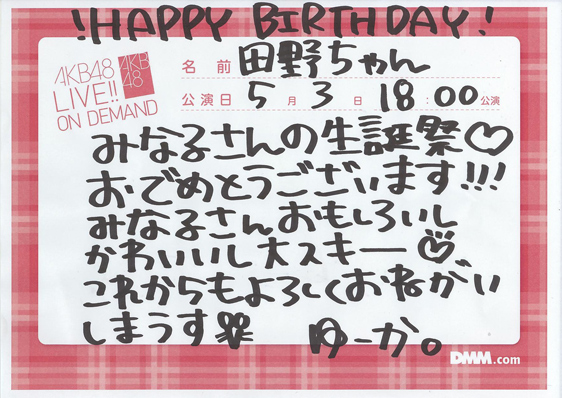 !HAPPY BIRTHDAY!
AKB48
LIVE!!
ON DEMAND
AKB
48
名前 田野ちゃん
公演日 5月3日 18:00公演
みなるさんの生誕祭♡
おでめとうございます!!!
みなるさんおもしろいし
かわいいし大スキー♡
これからもよろしくおねがい
しまうす
ゆーか。
DMM.com